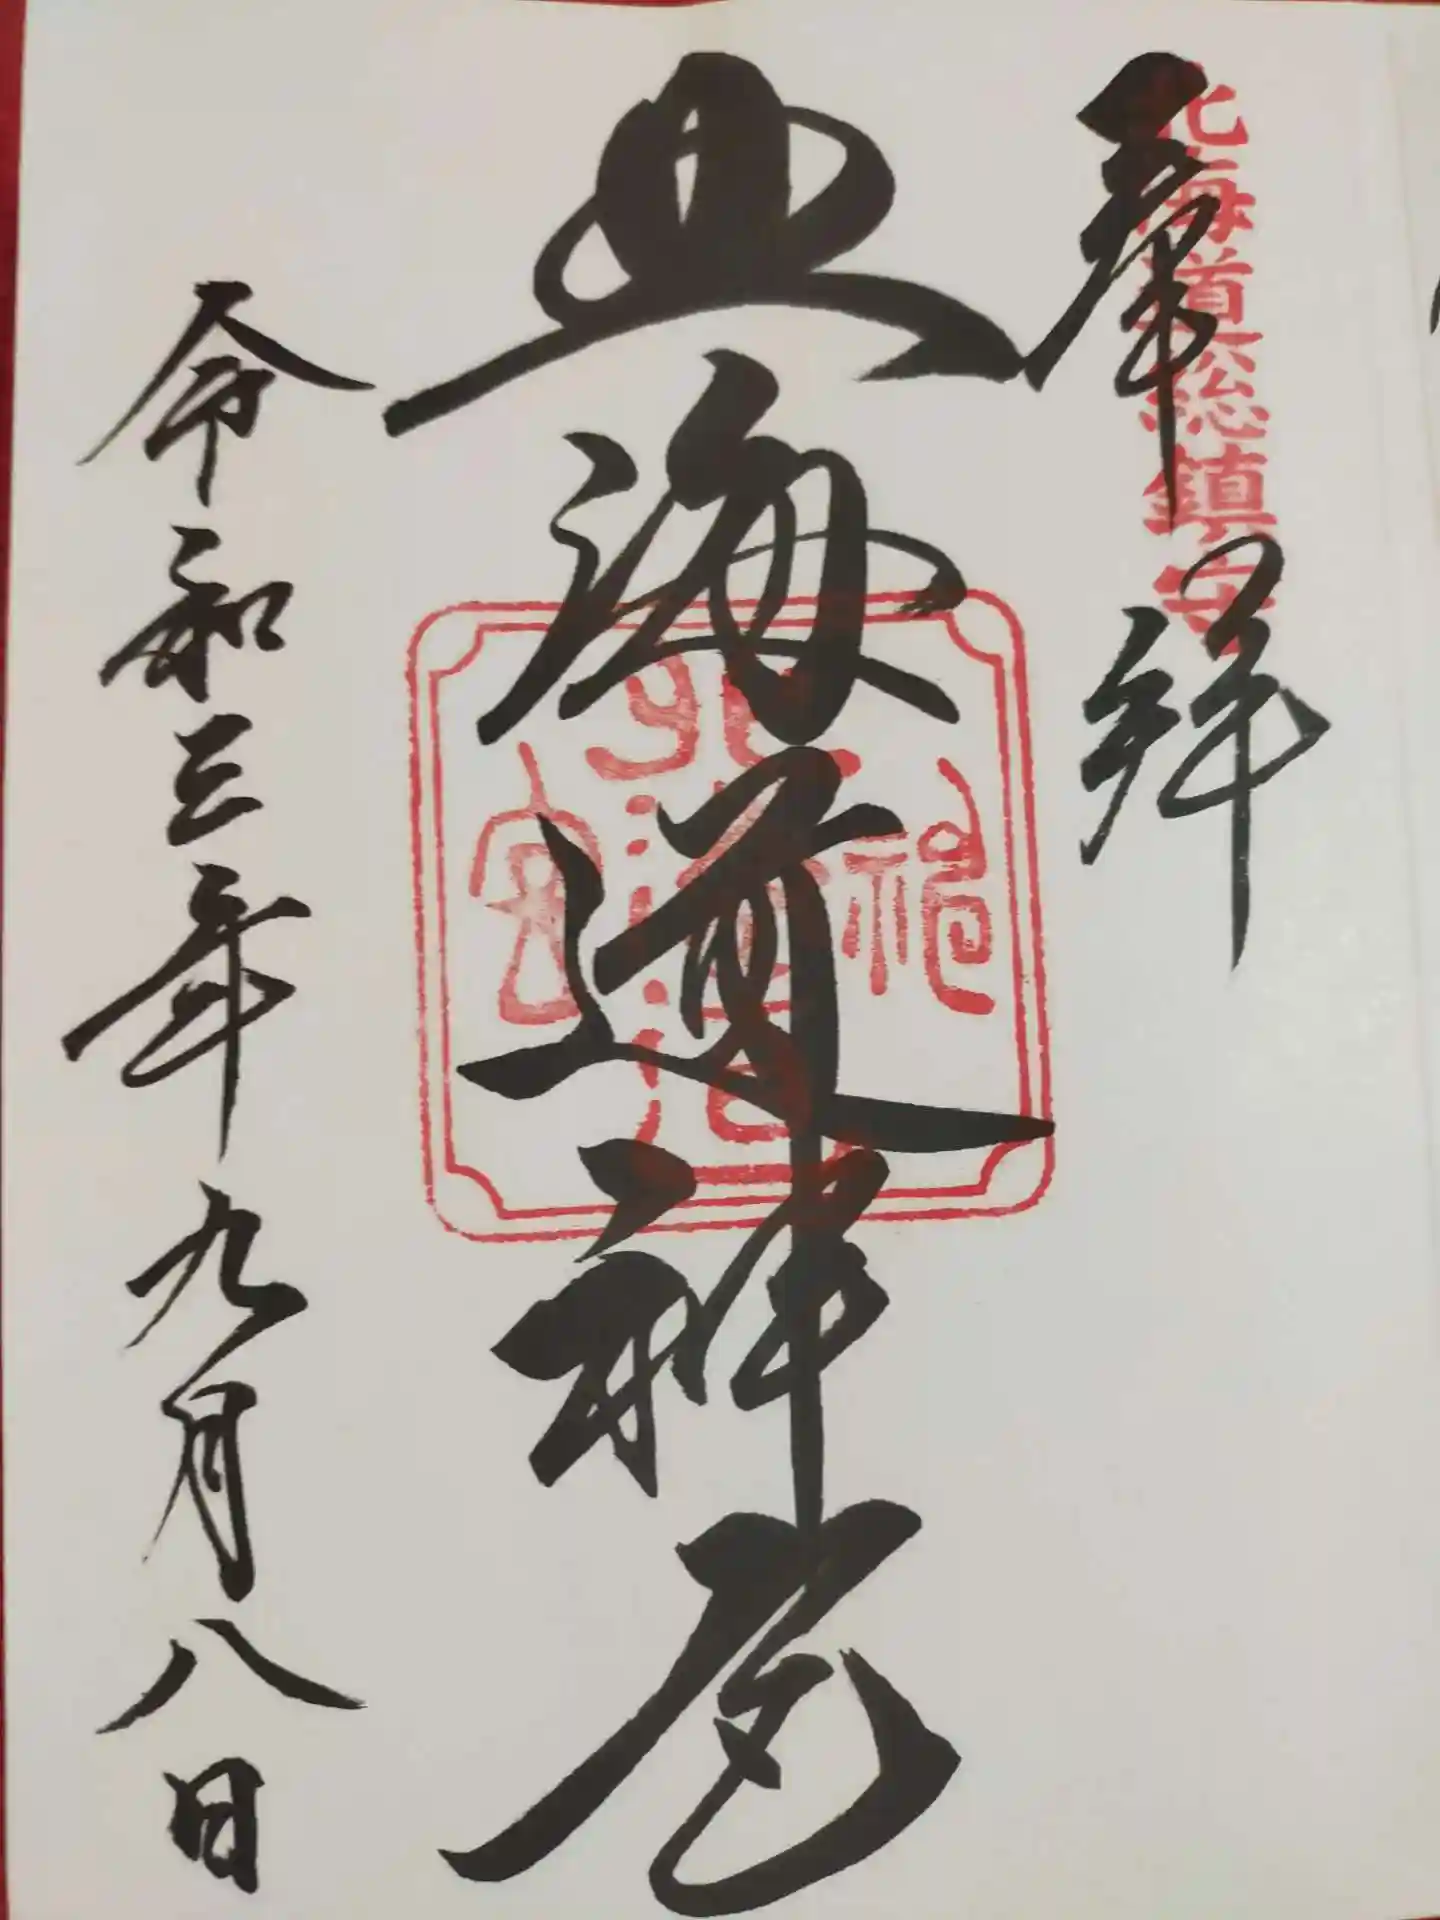 奉拝
北海道総鎮守
北海道神宮
北海道神宮
令和三年九月八日